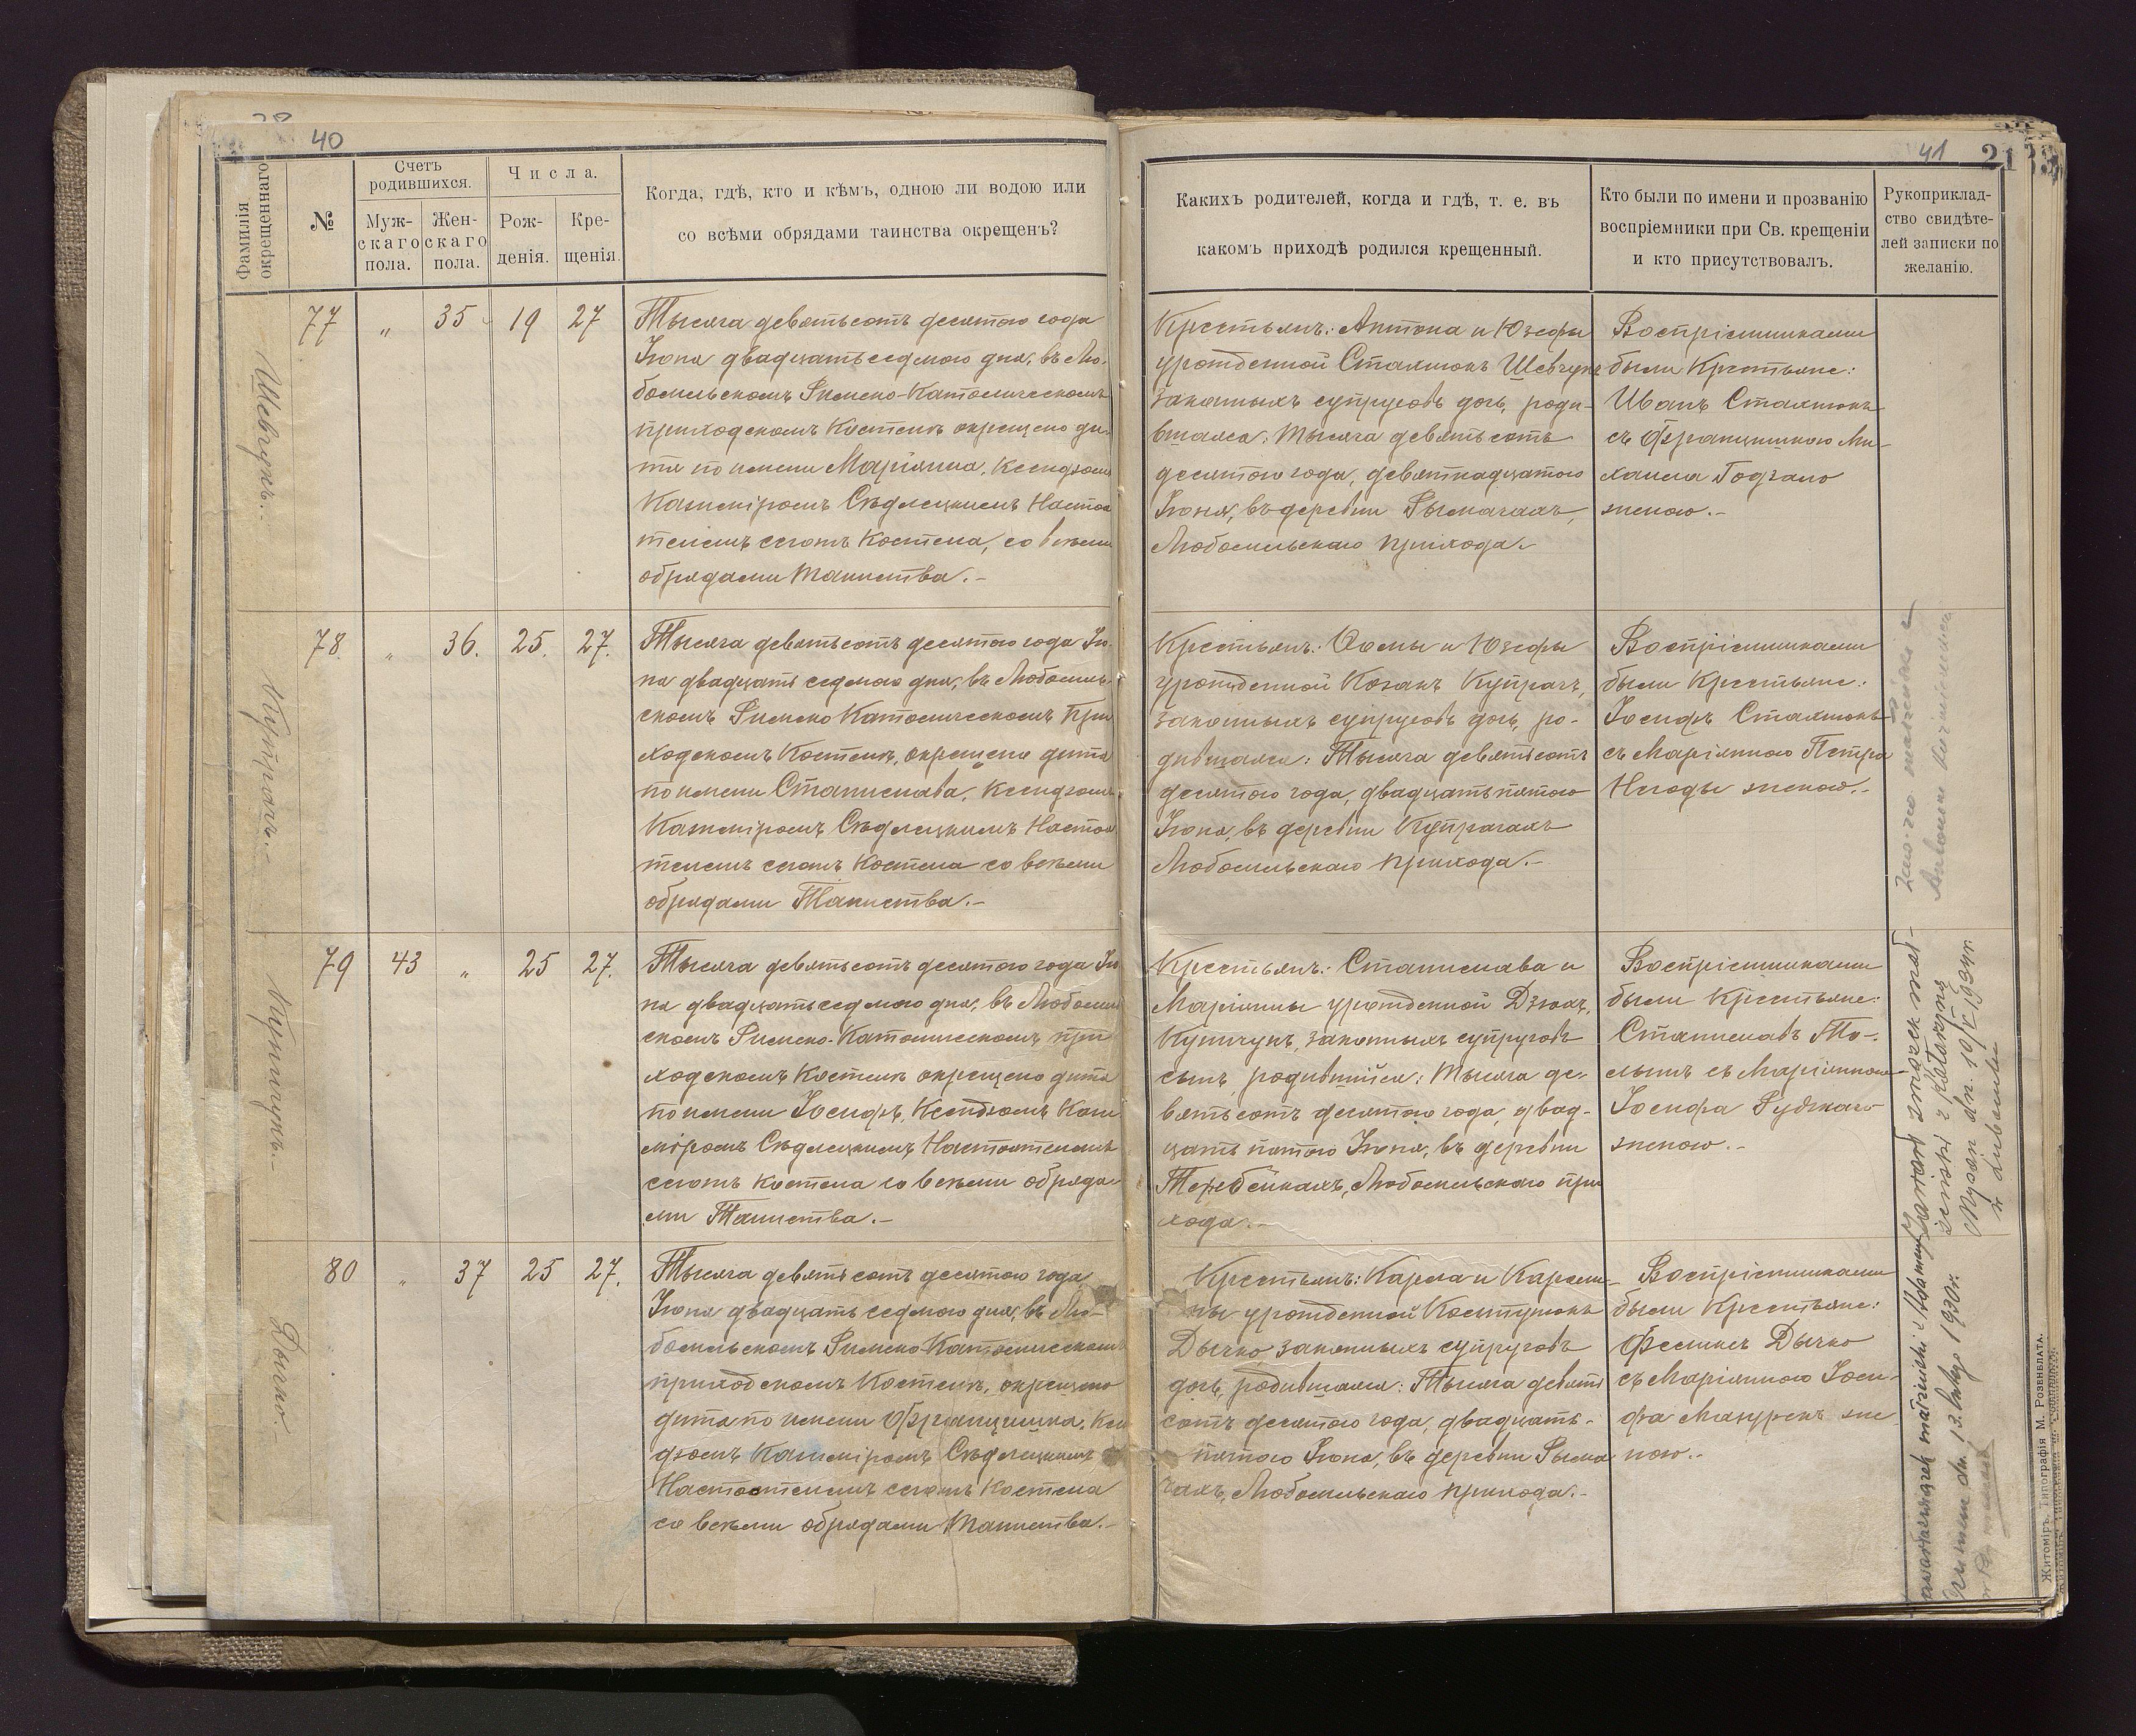 40
Фамилія окрещеннаго
№
Счетъ родившихся.
Муж-скаго пола.
Жен-скаго пола.
Числа.
Рож-денія.
Кре-щенія.
Когда, гдѣ, кто и кѣмъ, одною ли водою или
со всѣми обрядами таинства окрещенъ?
Шевчукъ.-
77 „ 35 19 27
Тысяча девятьсотъ десятого года
Іюня двадцатьседмого дня, въ Лю-
бомльскомъ Римско-Католическомъ
приходскомъ Костелѣ окрещено ди-
тя по имени Маріянна, Ксендзомъ
Казиміромъ Сѣдлецкимъ Настоя
телемъ сегожъ Костела, со всѣми
обрядами Таинства.-
Купрачъ.-
78. „ 36. 25. 27.
Тысяча девятьсотъ десятого года Ію-
ня двадцать седмого дня, въ Любомль-
скомъ Римско Католическомъ При
ходскомъ Костелѣ, окрещено дитя
по имени Станислава, Ксендзомъ
Казиміромъ Сѣдлецкимъ Настоя
телемъ сегожъ Костела со всѣми
обрядами Таинства.-
79 43 „ 25 27.
Тысяча девятьсотъ десятого года Ію
ня двадцатьседмого дня, въ Любомль
скомъ Римско-Католическомъ при
ходскомъ Костелѣ окрещено дитя
по имени Іосифъ, Ксендзомъ Кази
міромъ Сѣдлецкимъ Настоятелемъ
сегожъ Костела со всѣми обряда-
ми Таинства.-
Дычко.-
80 „ 37 25 27.
Тысяча девятьсотъ десятого года
Іюня двадцать седмого дня, въ Лю-
бомльскомъ Римско-Католическомъ
приходскомъ Костелѣ, окрещено
дитя по имени Францишка, Ксен
дзомъ Казиміромъ Сѣдлецкимъ
Настоятелемъ сегожъ Костела
со всѣми обрядами Таинства.-
41
21
Какихъ родителей, когда и гдѣ, т. е. въ
какомъ приходѣ родился крещенный.
Кто были по имени и прозванію
воспріемники при Св. крещеніи
и кто присутствовалъ.
Рукоприклад-
ство свидѣте-
лей записки по
желанію.
Крестьянъ: Антона и Юзефы
урожденной Сталмокъ Шевчукъ
законныхъ супруговъ дочь, роди-
вшаяся: Тысяча девятьсотъ
десятого года, девятнадцатого
Іюня, въ деревни Рымачахъ,
Любомльскаго прихода.-
Воспріемниками
были Крестьяне:
Иванъ Сталмокъ
съ Францишкою Ми-
хаила Годзало
женою.-
Крестьянъ: Ѳомы и Юзефы
урожденной Козакъ Купрачъ,
законныхъ супруговъ дочь, ро-
дившаяся: Тысяча девятьсотъ
десятого года, двадцатьпятого
Іюня, въ деревни Купрачахъ
Любомльскаго прихода.-
Воспріемниками
были Крестьяне:
Іосифъ Сталмокъ
съ Маріянною Петра
Негоды женою.-
Крестьянъ: Станислава и
Маріянны урожденной Дзюхъ,
законныхъ супруговъ
сынъ, родившійся: Тысяча де-
вятьсотъ десятого года, двад-
цать пятого Іюня, въ деревни
Теребейкахъ, Любомльскаго при
хода.-
Воспріемниками
были Крестьяне:
Станиславъ
съ Маріянною
Іосифа
женою.-
Крестьянъ: Карла и Кароли-
ны урожденной Костшонокъ
Дычко законныхъ супруговъ
дочь, родившаяся: Тысяча девять
сотъ десятого года, двадцать-
пятого Іюня, въ деревни Рыма
чахъ, Любомльскаго прихода.-
Воспріемниками
были Крестьяне:
Феликсъ Дычко
съ Маріянною Іоси-
фа Мазурекъ же
ною.-
Zawarł związek mał-
żeński z Katarzyną
dn. 10/V 1934r.
w Lubomlu
związek małżeński z
dn. 13. lutego 1930r.
Житоміръ. Типографія М. Розенблата.